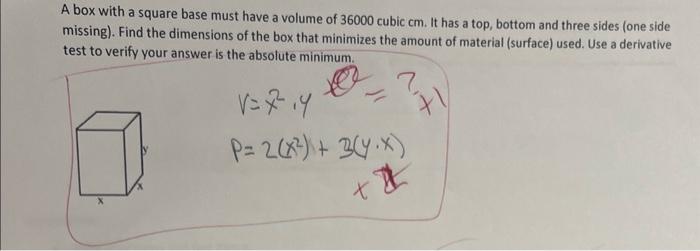 A box with a square base must have a volume of 36000 cubic cm. It has a top, bottom and three sides (one side
missing). Find the dimensions of the box that minimizes the amount of material (surface) used. Use a derivative
test to verify your answer is the absolute minimum.
V=x².y = ? +1
P= 2(x²) + 3(y.x)
y
x
x